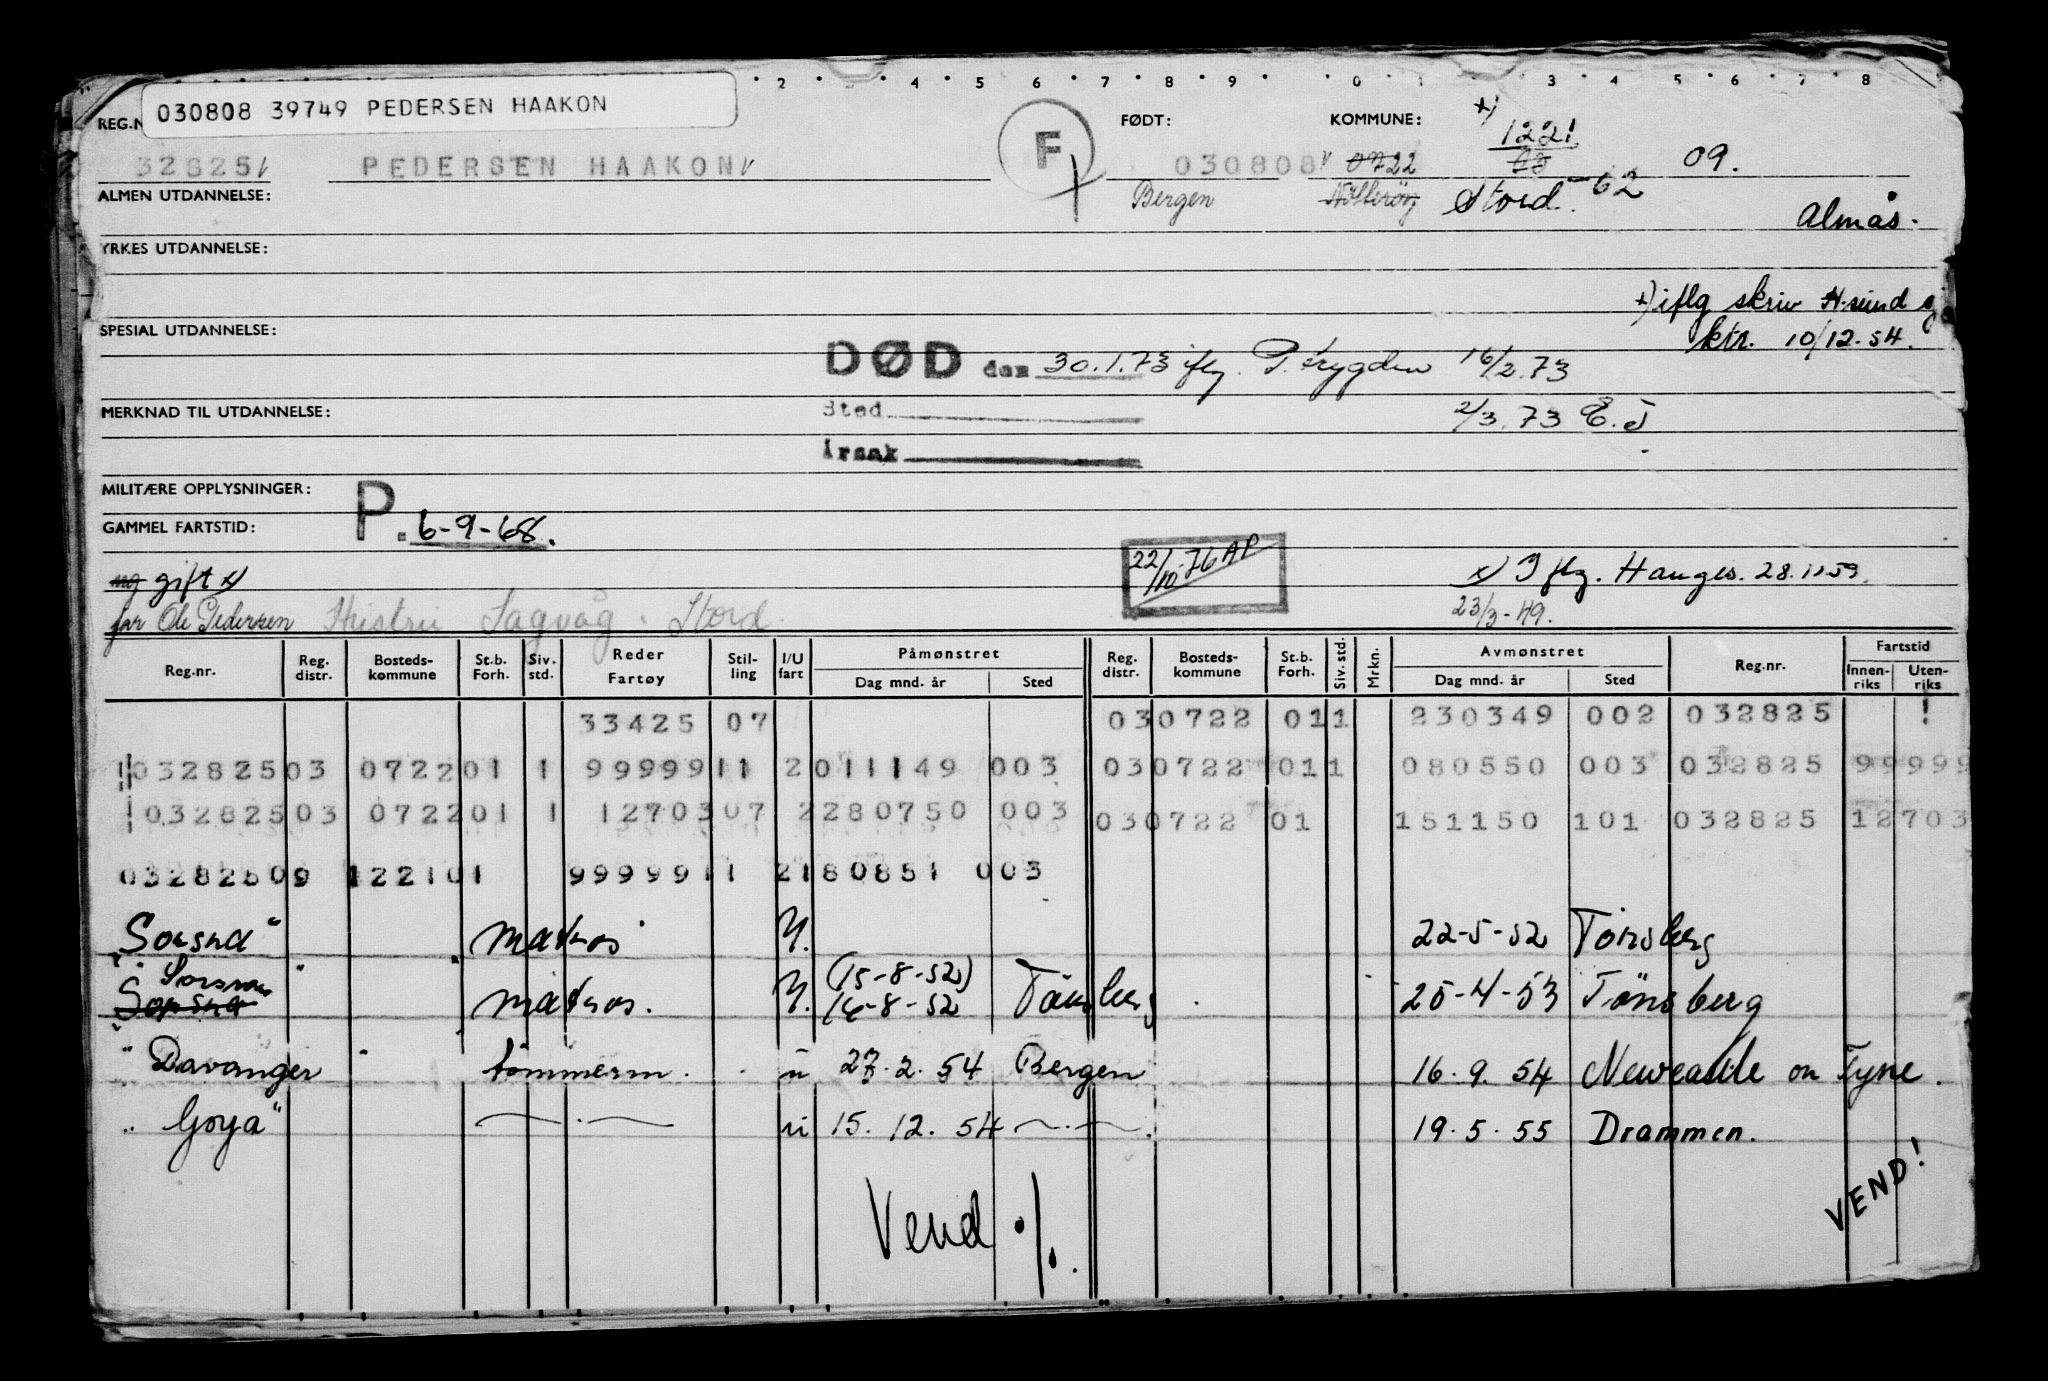 2 3 4 5 6 7 8 9 0 1 3 4 5 6 7 8
030808 39749 PEDERSEN HAAKON
REG.N FØDT: KOMMUNE: x) 1221
32825 PEDERSEN HAAKON F 030808 0722 09.
ALMEN UTDANNELSE: Bergen Nøtterøy Stord - 62
Almås.
YRKES UTDANNELSE:
x) iflg skriv H.sund sj
SPESIAL UTDANNELSE: ktr. 10/12.54.
DØD den 30.1.73 iflg. P. trygden 16/2.73
MERKNAD TIL UTDANNELSE: Sted 2/3.73 E.J
Årsak
MILITÆRE OPPLYSNINGER:
GAMMEL FARTSTID: P. 6-9-68.
22/10-76 AP
ug gift x) x) Iflg. Hauges. 28.11.59.
far Ole Pedersen Hustru Sagvåg. Stord 23/3-49.
Reg.nr. Reg. distr. Bosteds- kommune St.b. Forh. Siv. std. Reder Fartøy Stil- ling I/U fart Påmønstret Dag mnd. år Sted Reg. distr. Bosteds- kommune St.b. Forh. Siv. std. Mrkn. Avmønstret Dag mnd. år Sted Reg.nr. Fartstid Innen- riks Uten- riks
33425 07 030722 011 230349 002 032825
032825 03 0722 01 1 99999 11 2 011149 003 030722 011 080550 003 032825 99999
032825 03 0722 01 1 12703 07 2 280750 003 030722 01 151150 101 032825 12703
032825 09 1221 01 99999 11 2 180851 003
"Sorsna" matros U. 22-5-52 Tönsberg
"Sorsna" (15-8-52)
Sorsna matros. U. 16-8-52 Tönsberg 25-4-53 Tönsberg
"Davanger" tømmerm. u 27.2.54 Bergen 16.9.54 Newcastle on Tyne.
"Goya" — . — u 15.12.54 — . — 19.5.55 Drammen.
VEND!
Vend ./.